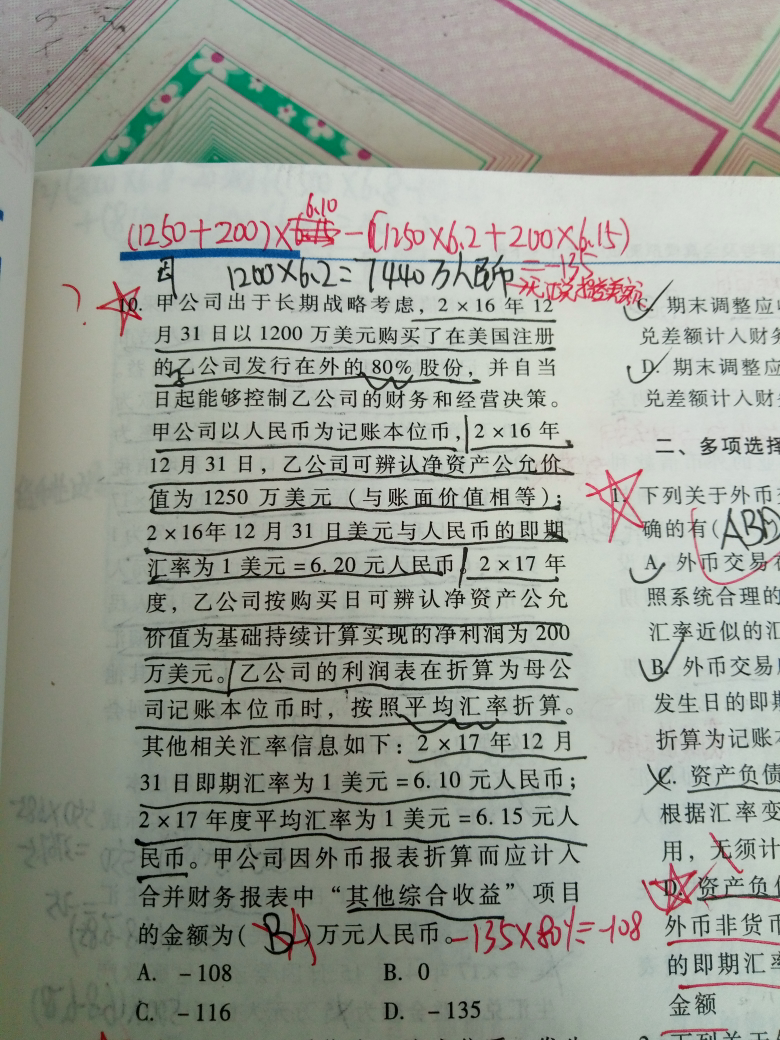 (1250+200)×6.10-(1250×6.2+200×6.15)
1200×6.2=7440万人民币 =-135
?
10. 甲公司出于长期战略考虑,2×16年12
月31日以1200万美元购买了在美国注册
的乙公司发行在外的80%股份,并自当
日起能够控制乙公司的财务和经营决策。
甲公司以人民币为记账本位币,2×16年
12月31日,乙公司可辨认净资产公允价
值为1250万美元(与账面价值相等);
2×16年12月31日美元与人民币的即期
汇率为1美元=6.20元人民币。2×17年
度,乙公司按购买日可辨认净资产公允
价值为基础持续计算实现的净利润为200
万美元。乙公司的利润表在折算为母公
司记账本位币时,按照平均汇率折算。
其他相关汇率信息如下:2×17年12月
31日即期汇率为1美元=6.10元人民币;
2×17年度平均汇率为1美元=6.15元人
民币。甲公司因外币报表折算而应计入
合并财务报表中“其他综合收益”项目
的金额为( B )万元人民币。-135×80%=-108
A. -108 B. 0
C. -116 D. -135
C. 期末调整应
兑差额计入财
D. 期末调整应
兑差额计入财
二、多项选择
1. 下列关于外币
确的有(ABD
A. 外币交易在
照系统合理的
汇率近似的汇
B. 外币交易
发生日的即期
折算为记账本
C. 资产负债
根据汇率变
用,无须计
D. 资产负债
外币非货币
的即期汇率
金额